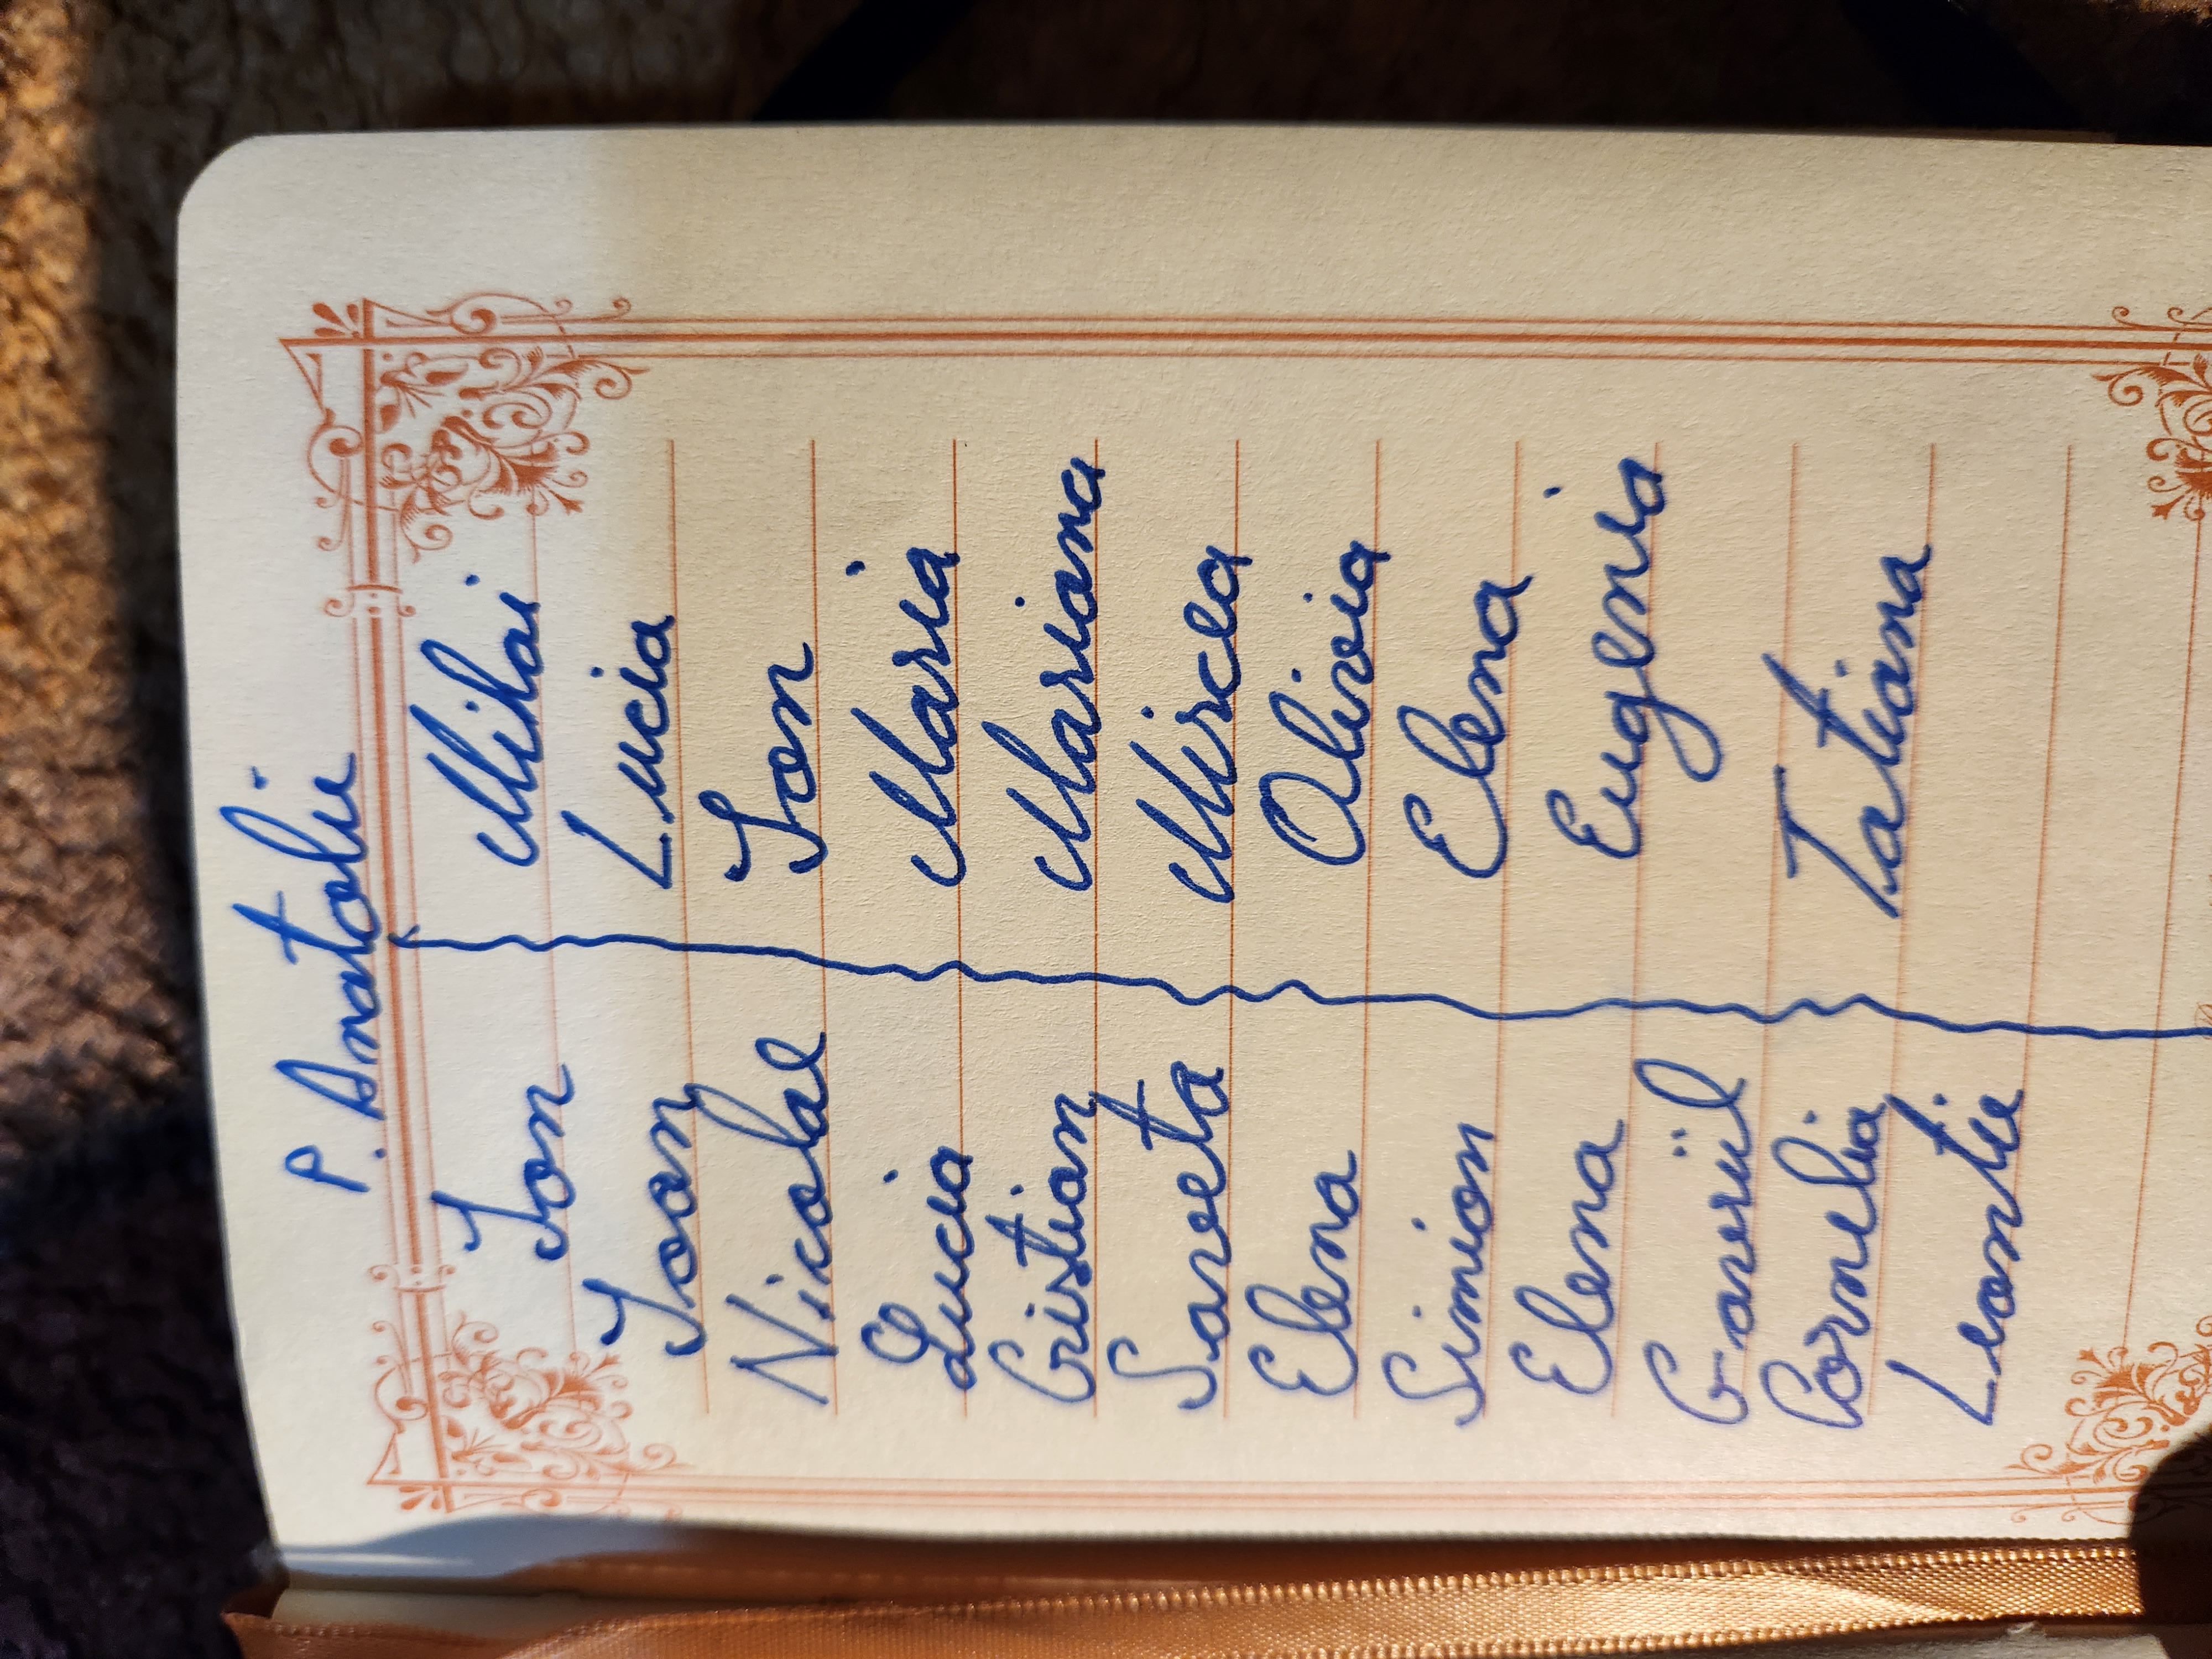 P. Anatolie
Ion
Ioan
Nicolae
Lucia
Cristian
Saveta
Elena
Simion
Elena
Gavriil
Cornelia
Leontie
Mihai
Lucia
Ion
Maria
Mariana
Mircea
Olivia
Elena
Eugenia
Tatiana